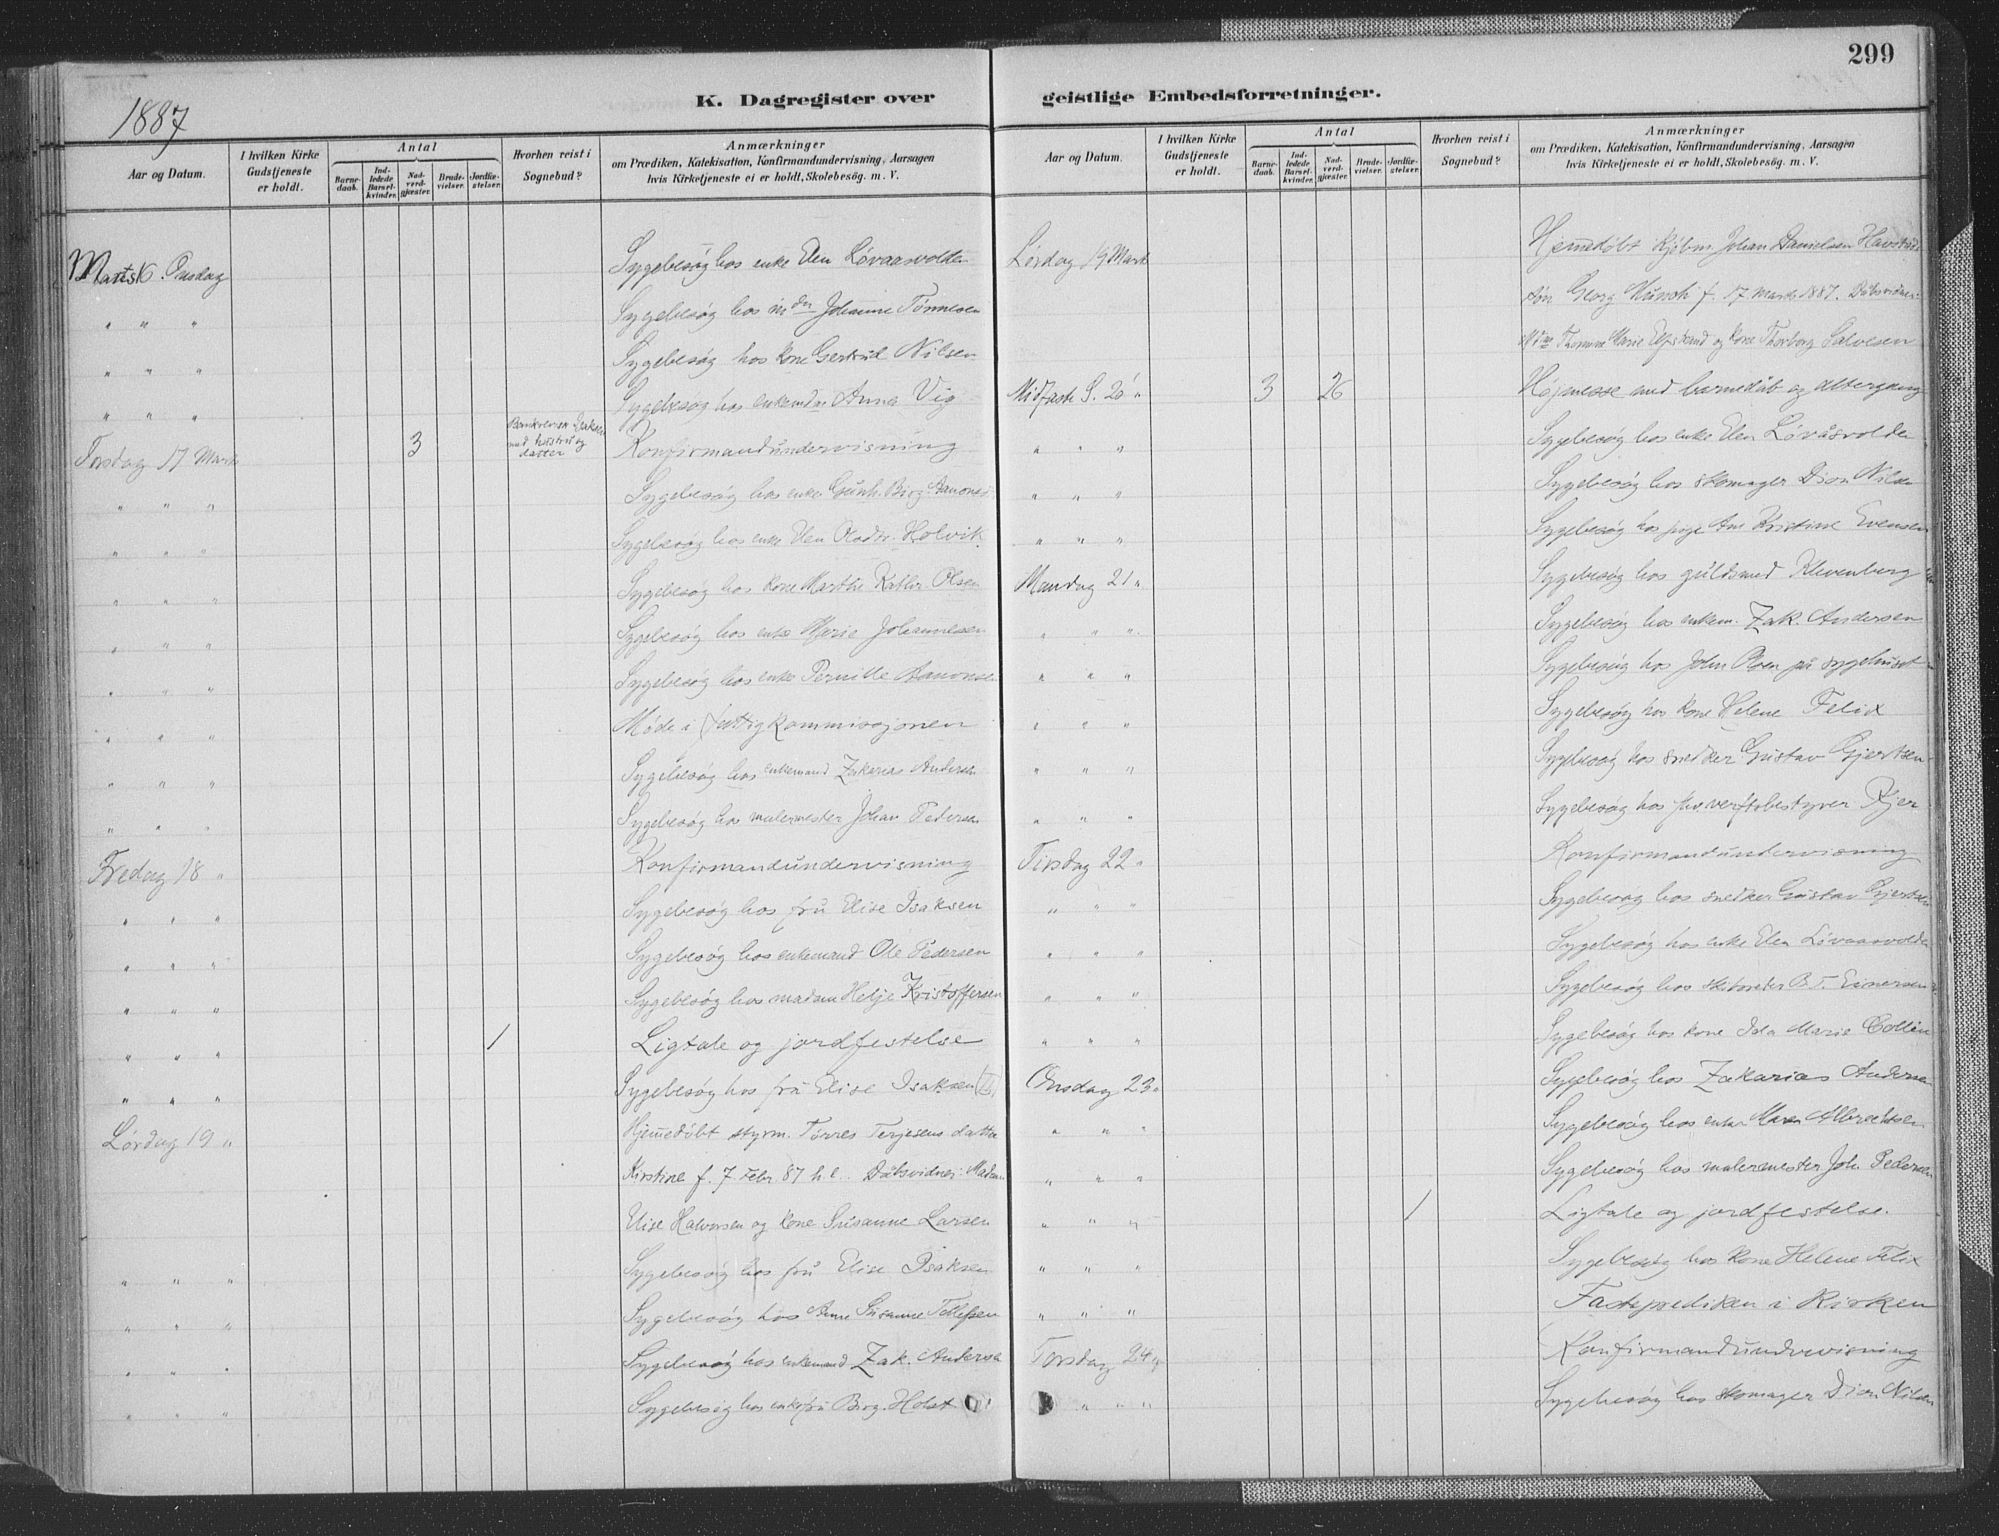 299
1887
K. Dagregister over
geistlige Embedsforretninger.
Aar og Datum.
I hvilken Kirke Gudstjeneste er holdt.
Antal
Barnedaab.
Indledede Barselkvinder.
Nadverdgjæster.
Brudevielser.
Jordfæstelser.
Hvorhen reist i Sognebud?
Anmærkninger
om Prædiken, Katekisation, Konfirmandundervisning, Aarsagen
hvis Kirketjeneste ei er holdt, Skolebesøg. m. V.
Marts 16. Onsdag Sygebesøg hos enke Elen Løvaasvolden
" " " Sygebesøg hos Johanne Tønnesen
" " " Sygebesøg hos kone Gertrud Nilsen
" " " Sygebesøg hos Anne Vig
Torsdag 17 Marts 3 med hustru og datter Konfirmandundervisning
" " " Sygebesøg hos enke Gunh. Birg. Aanonsen
" " " Sygebesøg hos enke Elen Holvik
" " " Sygebesøg hos kone Marthe Kathr. Olsen
" " " Sygebesøg hos enke Marie Johannesen
" " " Sygebesøg hos enke Pernille Aanonsen
" " " Møde i fattigkommissjonen
" " " Sygebesøg hos enkemand Zakarias Andersen
" " " Sygebesøg hos malermester Johan Pedersen
Fredag 18 " Konfirmandundervisning
" " " Sygebesøg hos fru Elise Isaksen
" " " Sygebesøg hos enkemand Ole Pedersen
" " " Sygebesøg hos madam Helje Kristoffersen
" " " 1 Ligtale og jordfestelse
" " " Sygebesøg hos fru Elise Isaksen
Lørdag 19 " Hjemmedøbt styrm. Tørres Terjesens datter
Kirstine f. 7 Febr 87 Dåbsvidner: Madam
Elise Halvorsen og kone Susanne Larsen
" " " Sygebesøg hos fru Elise Isaksen
" " " Sygebesøg hos Anne Susanne Tellefsen
" " " Sygebesøg hos enkemand Zak. Andersen
" " " Sygebesøg hos enkefru Birg. Holst
Aar og Datum.
I hvilken Kirke Gudstjeneste er holdt.
Antal
Barnedaab.
Indledede Barselkvinder.
Nadverdgjæster.
Brudevielser.
Jordfæstelser.
Hvorhen reist i Sognebud?
Anmærkninger
om Prædiken, Katekisation, Konfirmandundervisning, Aarsagen
hvis Kirketjeneste ei er holdt, Skolebesøg. m. V.
Lørdag 19 Marts Hjemmedøbt Kjøbm. Johan Danielsen
søn Georg f. 17 marts 1887. Dåbsvidner:
Marie og kone Thorborg Salvesen
Midfaste S. 20 " 3 26 Højmesse med barnedåb og altergang
" " " Sygebesøg hos enke Elen Løvåsvolden
" " " Sygebesøg hos skomager Dion Nilsen
" " " Sygebesøg hos pige Ane Kristine Evensen
Mandag 21 " Sygebesøg hos guldsmed Klevenberg
" " " Sygebesøg hos enkem. Zak. Andersen
" " " Sygebesøg hos John Olsen på sygehuset
" " " Sygebesøg hos kone Helene Felix
" " " Sygebesøg hos snedker Gustav Gjertsen
" " " Sygebesøg hos verftsbestyrer Kjer
Tirsdag 22 " Konfirmandundervisning
" " " Sygebesøg hos snedker Gustav Gjertsen
" " " Sygebesøg hos enke Elen Løvaasvolden
" " " Sygebesøg hos B. T. Einersen
" " " Sygebesøg hos kone Ida Marie Collin
Onsdag 23 " Sygebesøg hos Zakarias Andersen
" " " Sygebesøg hos enke Maren Albrechtsen
" " " Sygebesøg hos malermester Joh. Pedersen
" " " 1 Ligtale og jordfestelse.
" " " Sygebesøg hos kone Helene Felix
" " " Fasteprediken i Kirken
Torsdag 24 " Konfirmandundervisning
" " " Sygebesøg hos skomager Dion Nilsen